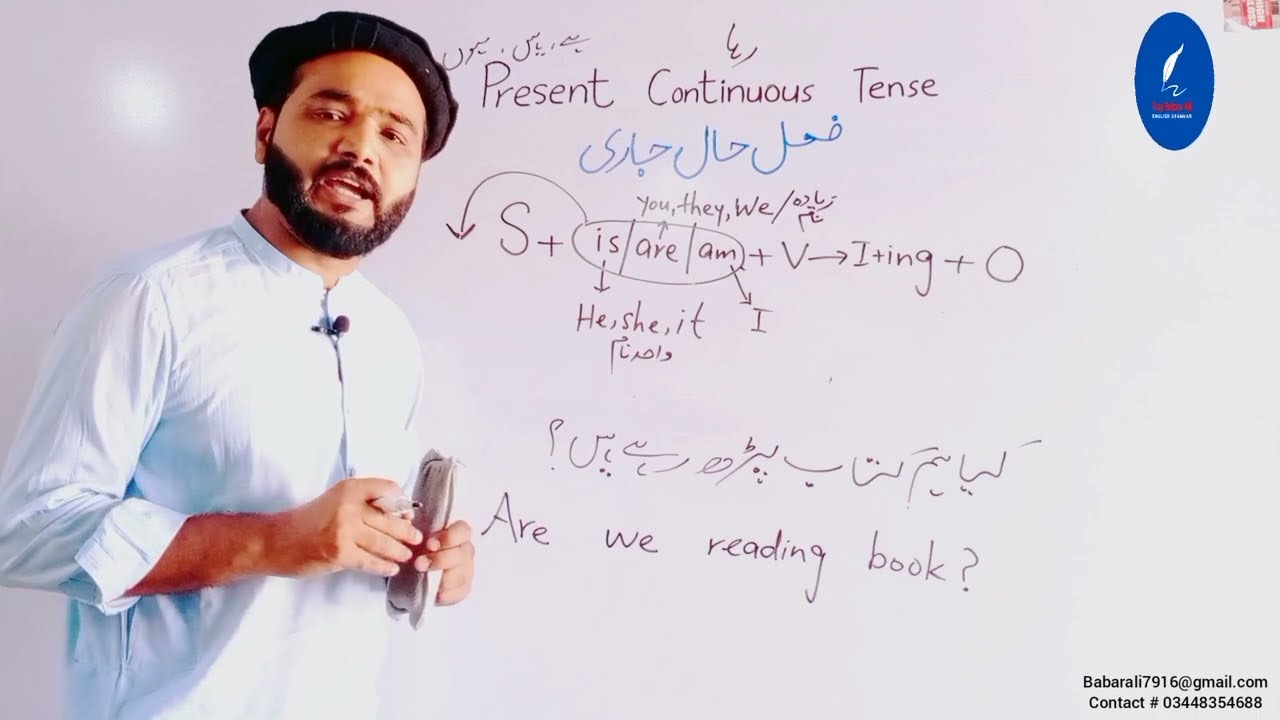 ہے، ہیں، ہوں
رہا
Present Continuous Tense
فعل حال جاری
you, they, We/زیادہ نام
S + is/are/am + V → I+ing + O
He, she, it I
واحد نام
کیا ہم کتاب پڑھ رہے ہیں؟
Are we reading book?
Ray Babar Ali
ENGLISH GRAMMAR
Babarali7916@gmail.com
Contact # 03448354688